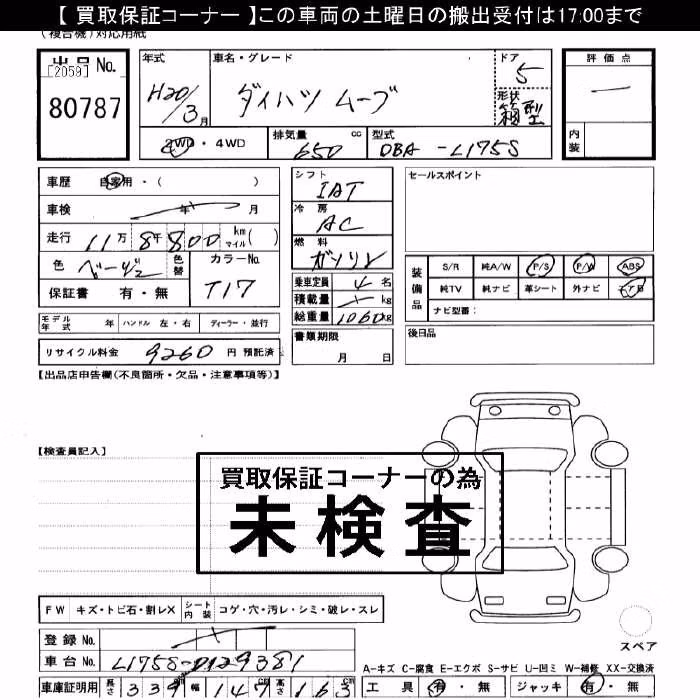 【 買取保証コーナー 】この車両の土曜日の搬出受付は17:00まで
(複合機)対応用紙
出品No. [2059] 80787
年式 H20/3月
車名・グレード ダイハツ ムーブ
ドア 5
形状 箱型
2WD・4WD
排気量 650 cc
型式 DBA-L175S
評価点 —
内装
車歴 自家用・( )
車検 年 月
走行 11万8千800 km マイル( )
色 ベージュ 色替
カラーNo. T17
保証書 有・無
モデル年式 年 ハンドル 左・右 ディーラー・並行
リサイクル料金 9260 円 預託済
シフト IAT
冷房 AC
燃料 ガソリン
乗車定員 4 名
積載量 kg
総重量 1060 kg
書類期限 月 日
セールスポイント
装備品 S/R 純A/W P/S P/W ABS
純TV 純ナビ 革シート 外ナビ エアB
ナビ型番:
後日品
【出品店申告欄(不良箇所・欠品・注意事項等)】
【検査員記入】
買取保証コーナーの為
未検査
FW キズ・トビ石・割レX シート内装 コゲ・穴・汚レ・シミ・破レ・スレ
登録No.
車台No. L175S-0129381
スペア
A-キズ C-腐食 E-エクボ S-サビ U-凹ミ W-補修 XX-交換済
車庫証明用 長さ 339 cm 幅 147 cm 高さ 163 cm
工具 有・無 ジャッキ 有・無